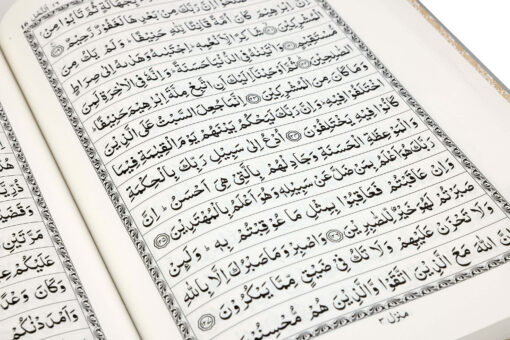 بِجَهَالَةٍ ثُمَّ تَابُوْا مِنْ
اِنَّ رَبَّكَ مِنْۢ بَعْدِهَا لَغَفُوْرٌ رَّحِيْمٌ
اِنَّ اِبْرٰهِيْمَ كَانَ اُمَّةً قَانِتًا لِّلّٰهِ حَنِيْفًا ؕ وَلَمْ يَكُ مِنَ
الْمُشْرِكِيْنَ شَاكِرًا لِّاَنْعُمِهٖ ؕ اِجْتَبٰىهُ وَهَدٰىهُ اِلٰى صِرَاطٍ
مُّسْتَقِيْمٍ وَاٰتَيْنٰهُ فِى الدُّنْيَا حَسَنَةً ؕ وَاِنَّهٗ فِى الْاٰخِرَةِ لَمِنَ
الصّٰلِحِيْنَ ثُمَّ اَوْحَيْنَاۤ اِلَيْكَ اَنِ اتَّبِعْ مِلَّةَ اِبْرٰهِيْمَ حَنِيْفًا ؕ
وَمَا كَانَ مِنَ الْمُشْرِكِيْنَ ﴿۱۲۳﴾ اِنَّمَا جُعِلَ السَّبْتُ عَلَى الَّذِيْنَ
اخْتَلَفُوْا فِيْهِ ؕ وَاِنَّ رَبَّكَ لَيَحْكُمُ بَيْنَهُمْ يَوْمَ الْقِيٰمَةِ فِيْمَا
كَانُوْا فِيْهِ يَخْتَلِفُوْنَ ﴿۱۲۴﴾ اُدْعُ اِلٰى سَبِيْلِ رَبِّكَ بِالْحِكْمَةِ
وَالْمَوْعِظَةِ الْحَسَنَةِ وَجَادِلْهُمْ بِالَّتِىْ هِىَ اَحْسَنُ ؕ اِنَّ
رَبَّكَ هُوَ اَعْلَمُ بِمَنْ ضَلَّ عَنْ سَبِيْلِهٖ وَهُوَ اَعْلَمُ بِالْمُهْتَدِيْنَ ﴿۱۲۵﴾
وَاِنْ عَاقَبْتُمْ فَعَاقِبُوْا بِمِثْلِ مَا عُوْقِبْتُمْ بِهٖ ؕ وَلَئِنْ
صَبَرْتُمْ لَهُوَ خَيْرٌ لِّلصّٰبِرِيْنَ ﴿۱۲۶﴾ وَاصْبِرْ وَمَا صَبْرُكَ اِلَّا بِاللّٰهِ
وَلَا تَحْزَنْ عَلَيْهِمْ وَلَا تَكُ فِىْ ضَيْقٍ مِّمَّا يَمْكُرُوْنَ ﴿۱۲۷﴾
اِنَّ اللّٰهَ مَعَ الَّذِيْنَ اتَّقَوْا وَّالَّذِيْنَ هُمْ مُّحْسِنُوْنَ ﴿۱۲۸﴾
منزل ۳
مَرَّتَيْنِ
عَلَيْكُمْ
وَكَانَ
وَاَمْدَدْنٰكُمْ